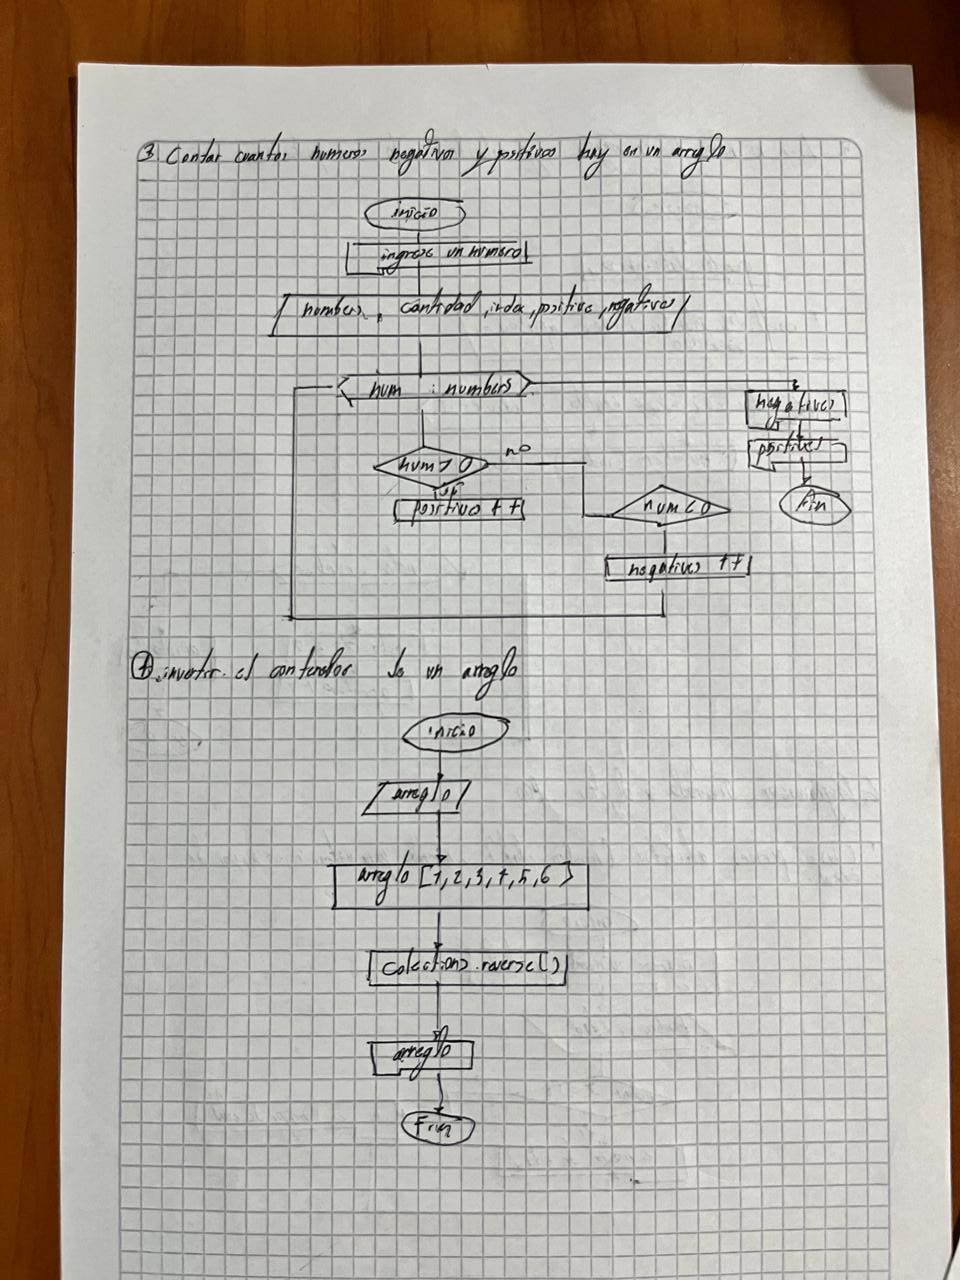 3 Contar cuantos numeros negativos y positivos hay en un arreglo
inicio
ingrese un numero
numbers, cantidad, index, positive, negatives
num : numbers
negatives
positives
Fin
num > 0
no
positivo ++
num < 0
negatives ++
4 invertir el de un arreglo
inicio
arreglo
arreglo [1,2,3,4,5,6]
colections.reverse()
arreglo
Fin